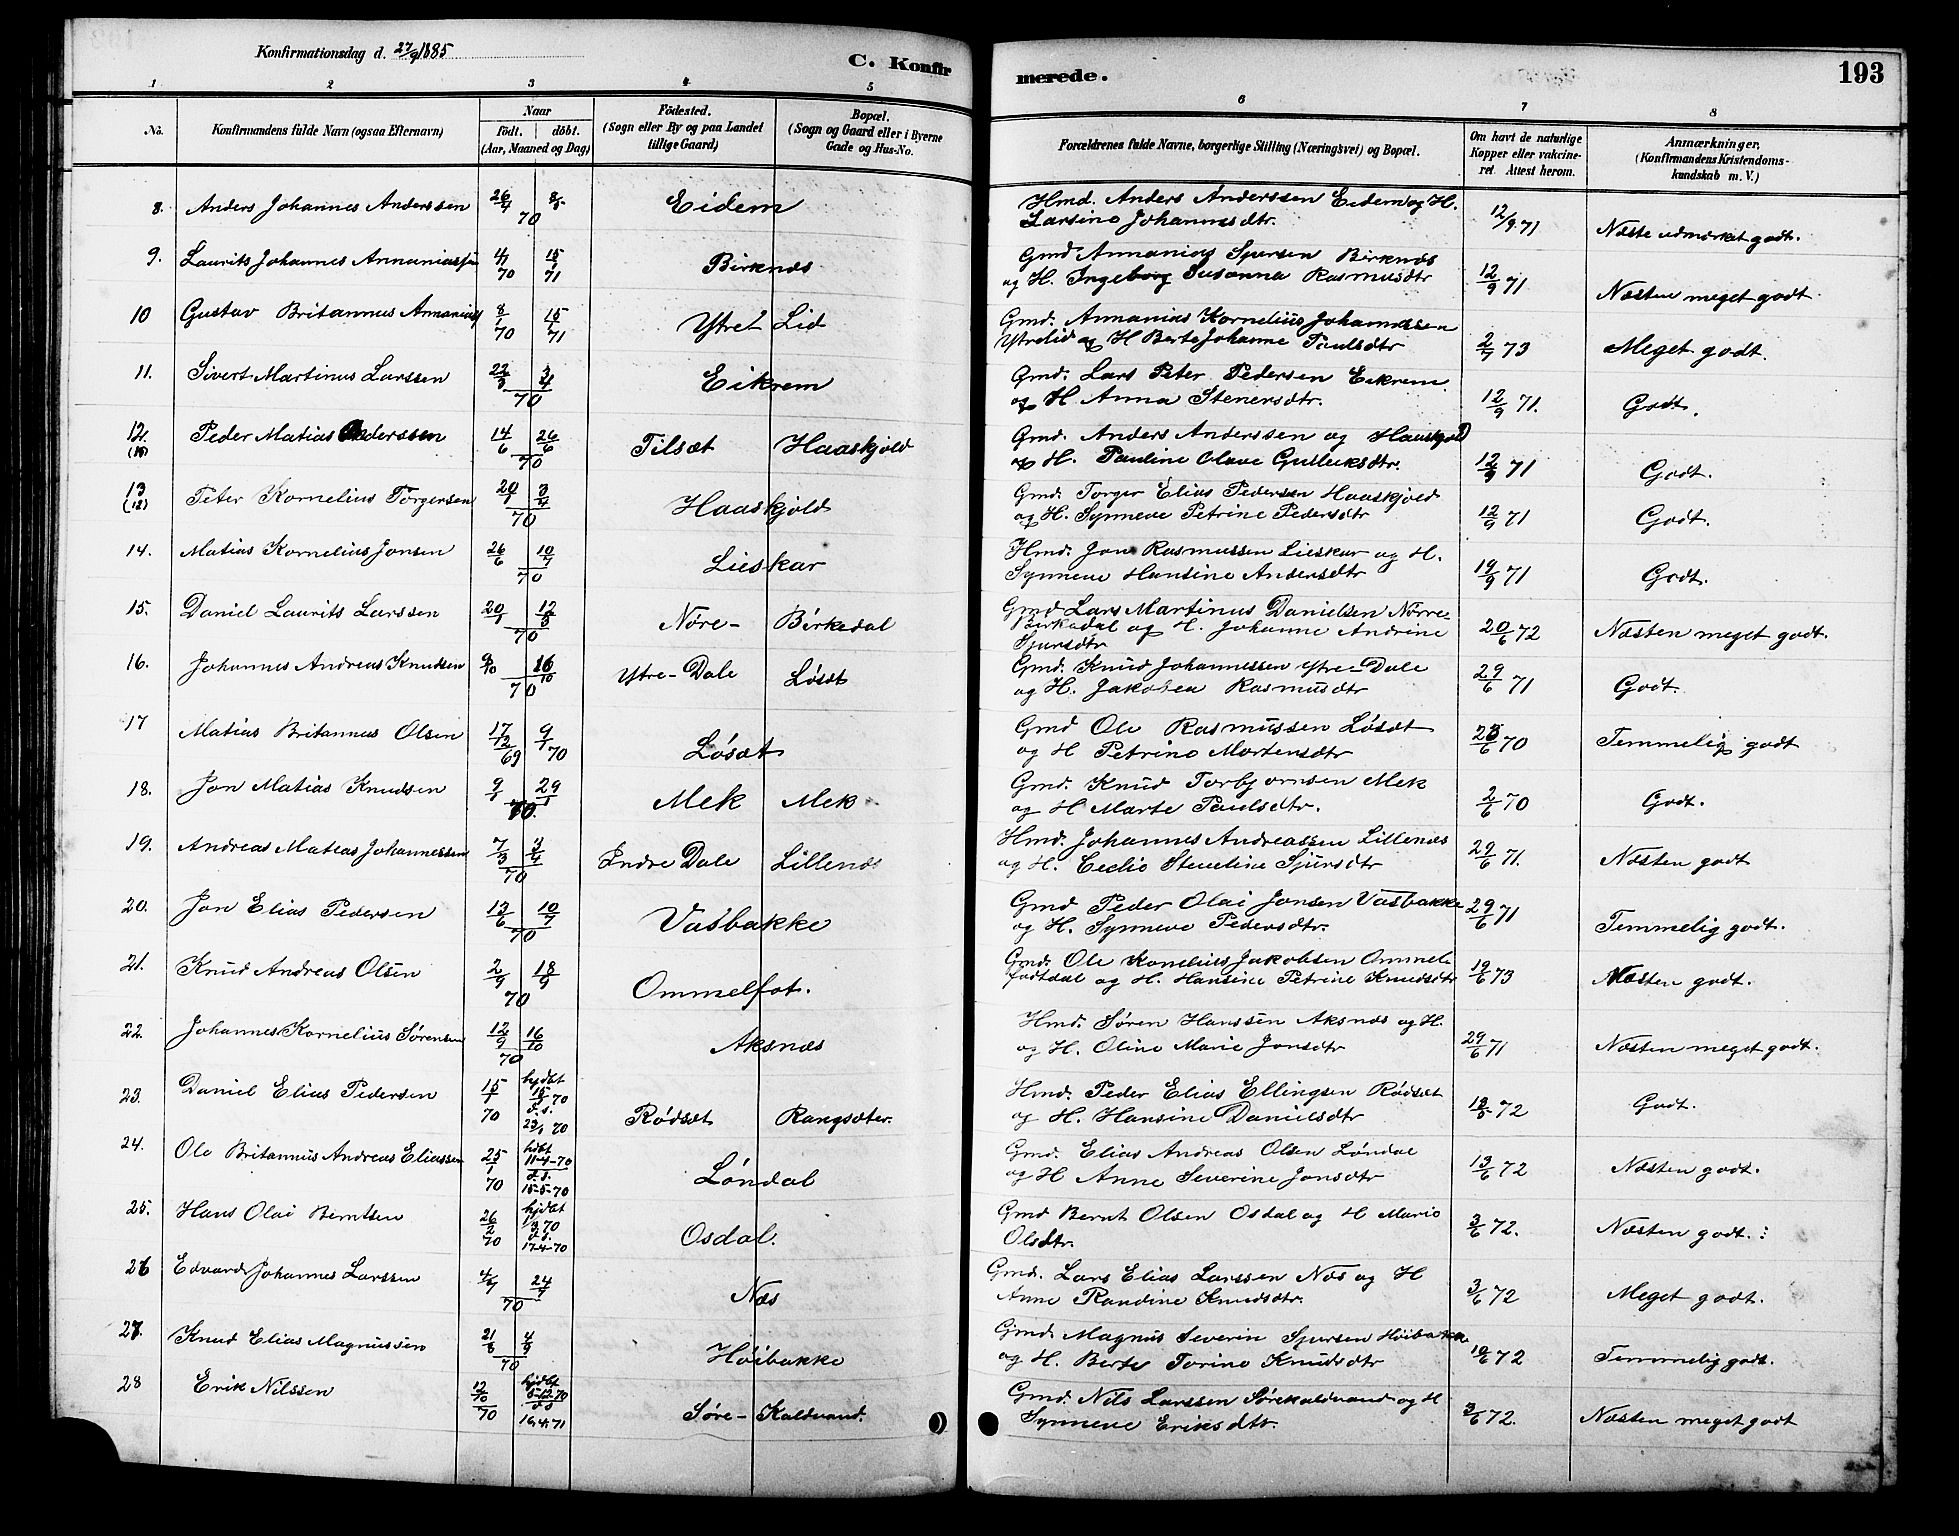 Konfirmationsdag d. 27/9 1885
C. Konfirmerede.
193
1 2 3 4 5 6 7 8
No.
Konfirmandens fulde Navn (ogsaa Efternavn)
Naar
födt. | döbt.
(Aar, Maaned og Dag)
Födested.
(Sogn eller By og paa Landet
tillige Gaard)
Bopæl.
(Sogn og Gaard eller i Byerne
Gade og Hus-No.
Forældrenes fulde Navne, borgerlige Stilling (Næringsvei) og Bopæl.
Om havt de naturlige
Kopper eller vakcine-
ret. Attest herom.
Anmærkninger,
(Konfirmandens Kristendoms-
kundskab m. V.)
8. Anders Johannes Anderssen 26/4 8/5 70 Eidem Hmd. Anders Anderssen Eidem og H.
Larsine Johannesdtr. 12/9 71 Næste udmærket godt.
9. Laurits Johannes Annaniassen 4/1 70 15/1 71 Birknæs Gmd Annanias Sjursen Birknæs
og H. Ingeborg Susanna Rasmusdtr 12/9 71 Næsten meget godt.
10 Gustav Britannus Annanias 8/1 70 15/1 71 Ytre Lid Gmd. Annanias Kornelius Johannessen
Ytrelid og H Berte Johanne Paulsdtr 2/7 73 Meget godt.
11. Sivert Martinus Larssen 22/3 3/4 70 Eikrem Gmd. Lars Peter Pedersen Eikrem
og H. Anna Stenersdtr. 12/9 71. Godt.
12. Peder Matias Anderssen 14/6 26/6 70 Tilsæt Haaskjold Gmd. Anders Anderssen og Haaskjold
og H. Pauline Olave Gulleiksdtr. 12/9 71 Godt.
13 (12) Peter Kornelius Torgersen 20/1 3/4 70 Haaskjold Gmd. Torger Elias Pedersen Haaskjold
og H. Synneve Petrine Pedersdtr 12/9 71 Godt.
14. Matias Kornelius Jonsen 26/6 10/7 70 Lieskar Hmd. Jon Rasmussen Lieskar og H.
Synneve Hansine Andersdtr 19/9 71 Godt.
15. Daniel Laurits Larssen 20/1 12/3 70 Nøre- Birkedal Gmd Lars Martinus Danielsen Nørre-
Birkedal og H. Johanne Andrine
Sjursdtr 20/6 72 Næsten meget godt.
16. Johannes Andreas Knudsen 9/10 16/10 70 Ytre-Dale Løsæt Gmd. Knud Johannessen Ytre-Dale
og H. Jakobea Rasmusdtr 29/6 71 Godt.
17 Matias Britannus Olsen 17/12 69 9/1 70 Løsæt Gmd Ole Rasmussen Løsæt
og H Petrine Mortensdtr 23/6 70 Temmelig godt
18. Jon Matias Knudsen 9/1 29/1 70. Mek Mek Gmd. Knud Torbjørnsen Mek
og H Marte Paulsdtr. 2/6 70 Godt.
19. Andreas Matias Johannessen 7/3 3/4 70 Indre Dale Lillenæs Hmd. Johannes Andreassen Lillenæs
og H. Cecilie Steneline Sjursdtr 29/6 71. Næsten godt
20. Jon Elias Pedersen 13/6 10/7 70 Vasbakke Gmd Peder Olai Jonsen Vasbakke
og H. Synneve Pedersdtr. 29/6 71 Temmelig godt.
21. Knud Andreas Olsen 2/9 18/9 70 Ommelfot. Gmd. Ole Kornelius Jakobsen Ommel-
fotdal og H. Hansine Petrine Knudsdtr 19/6 73 Næsten godt.
22. Johannes Kornelius Sørensen 12/9 16/10 70 Aksnæs Hmd. Søren Hanssen Aksnæs og H.
og H. Oline Marie Jonsdtr 29/6 71 Næsten meget godt.
23. Daniel Elias Pedersen 15/1 70 hjdbt 70 d.s. 70 Rødsæt Rangsæter. Hmd. Peder Elias Ellingsen Rødsæt
og H. Hansine Danielsdtr 72 Godt.
24. Ole Britannus Andreas Eliassen 25/1 70 hjdbt 11-4-70 d.s. 15-5-70 Løndal Gmd. Elias Andreas Olsen Løndal
og H Anne Severine Jonsdtr 13/6 72 Næsten godt.
25. Hans Olai Berntsen 26/2 70 hjdbt 70 d.s. 17-4-70 Osdal. Gmd Bernt Olsen Osdal og H Marie
Olsdtr. 3/6 72. Næsten godt.
26 Edvard Johannes Larssen 4/7 24/7 70 Næs Gmd. Lars Elias Larssen Næs og H
Anne Randine Knudsdtr. 3/6 72 Meget godt.
27. Knud Elias Magnussen 21/8 4/9 70 Høibakke Gmd. Magnus Severin Sjursen Høibakke
og H. Berte Torine Knudsdtr 10/6 72 Temmelig godt.
28 Erik Nilssen 12/10 70 hjdbt 5-12-70 d.s 16.4.71 Søre- Kaldvand. Gmd. Nils Larssen Sørekaldvand og H
Synneve Eriksdtr. 3/6 72. Næsten meget godt